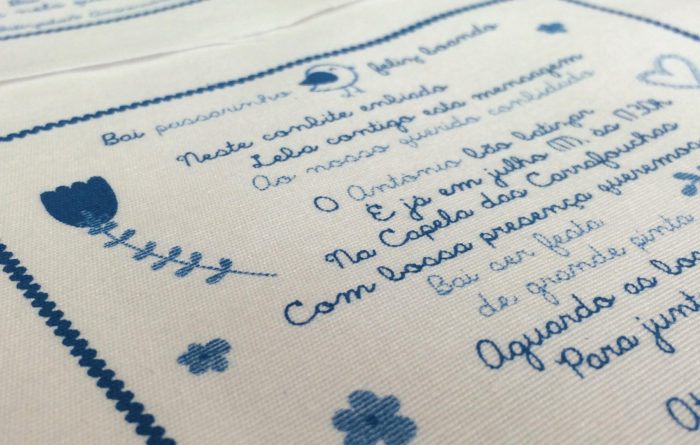 Bai passarinho feliz boando
Neste conbite enbiado
Leba contigo esta mensagem
Ao nosso querido conbidado
O António bão batizar
É já em julho às
Na Capela das Carrafouchas
Com bossa presença queremos
Bai ser festa
de grande pinta
Aguardo as
Para